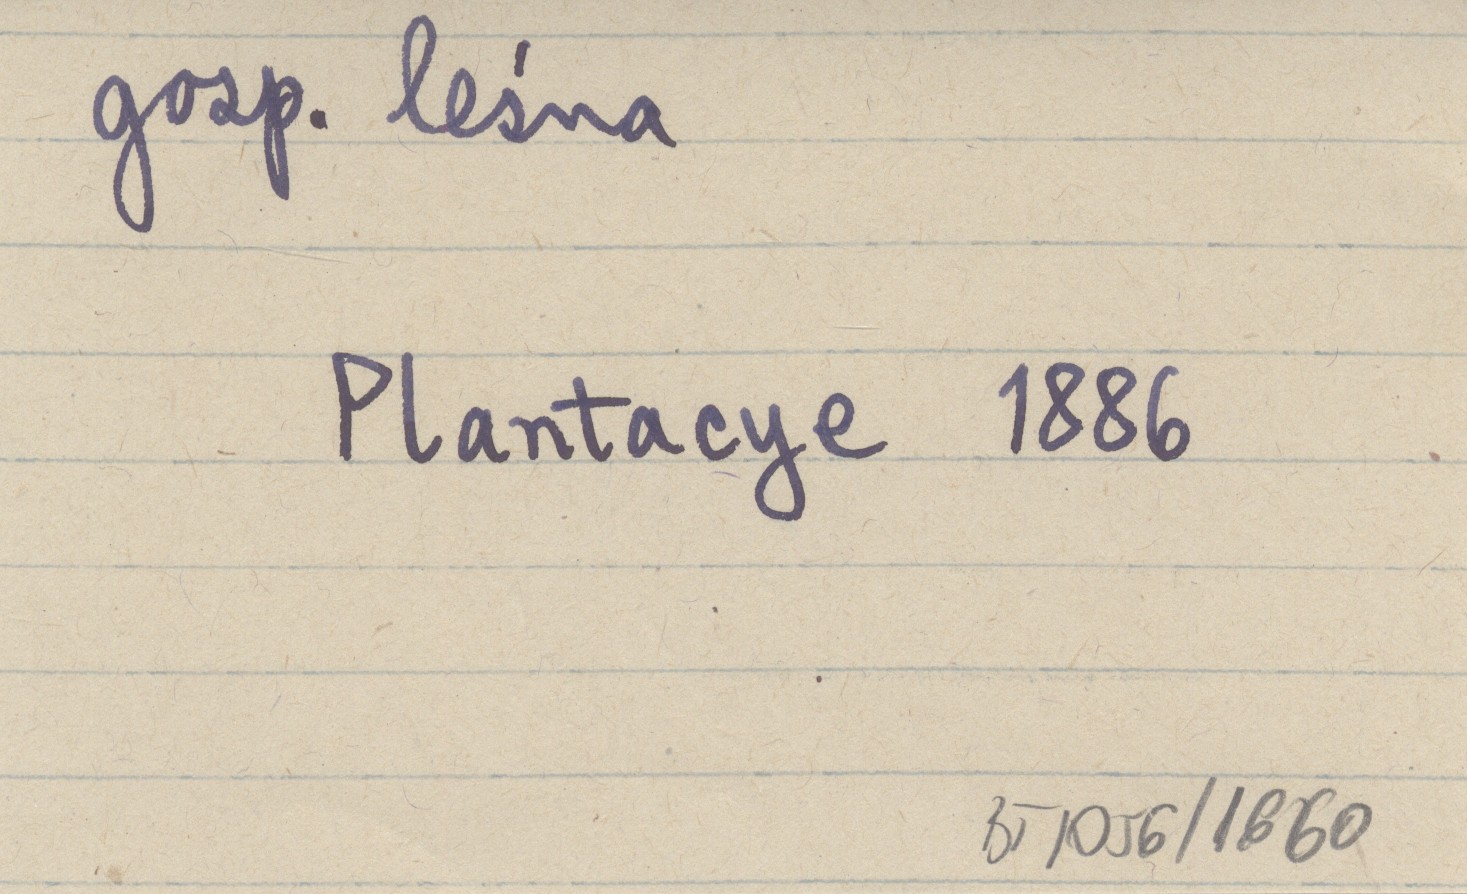 gosp. leśna
Plantacye 1886
BT 1056/1660